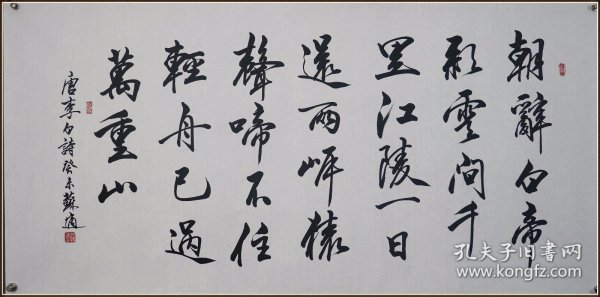 朝辭白帝
彩雲間千
里江陵一日
還兩岸猿
聲啼不住
輕舟已過
萬重山
唐李白詩癸未蘇適
孔夫子旧书网
www.kongfz.com